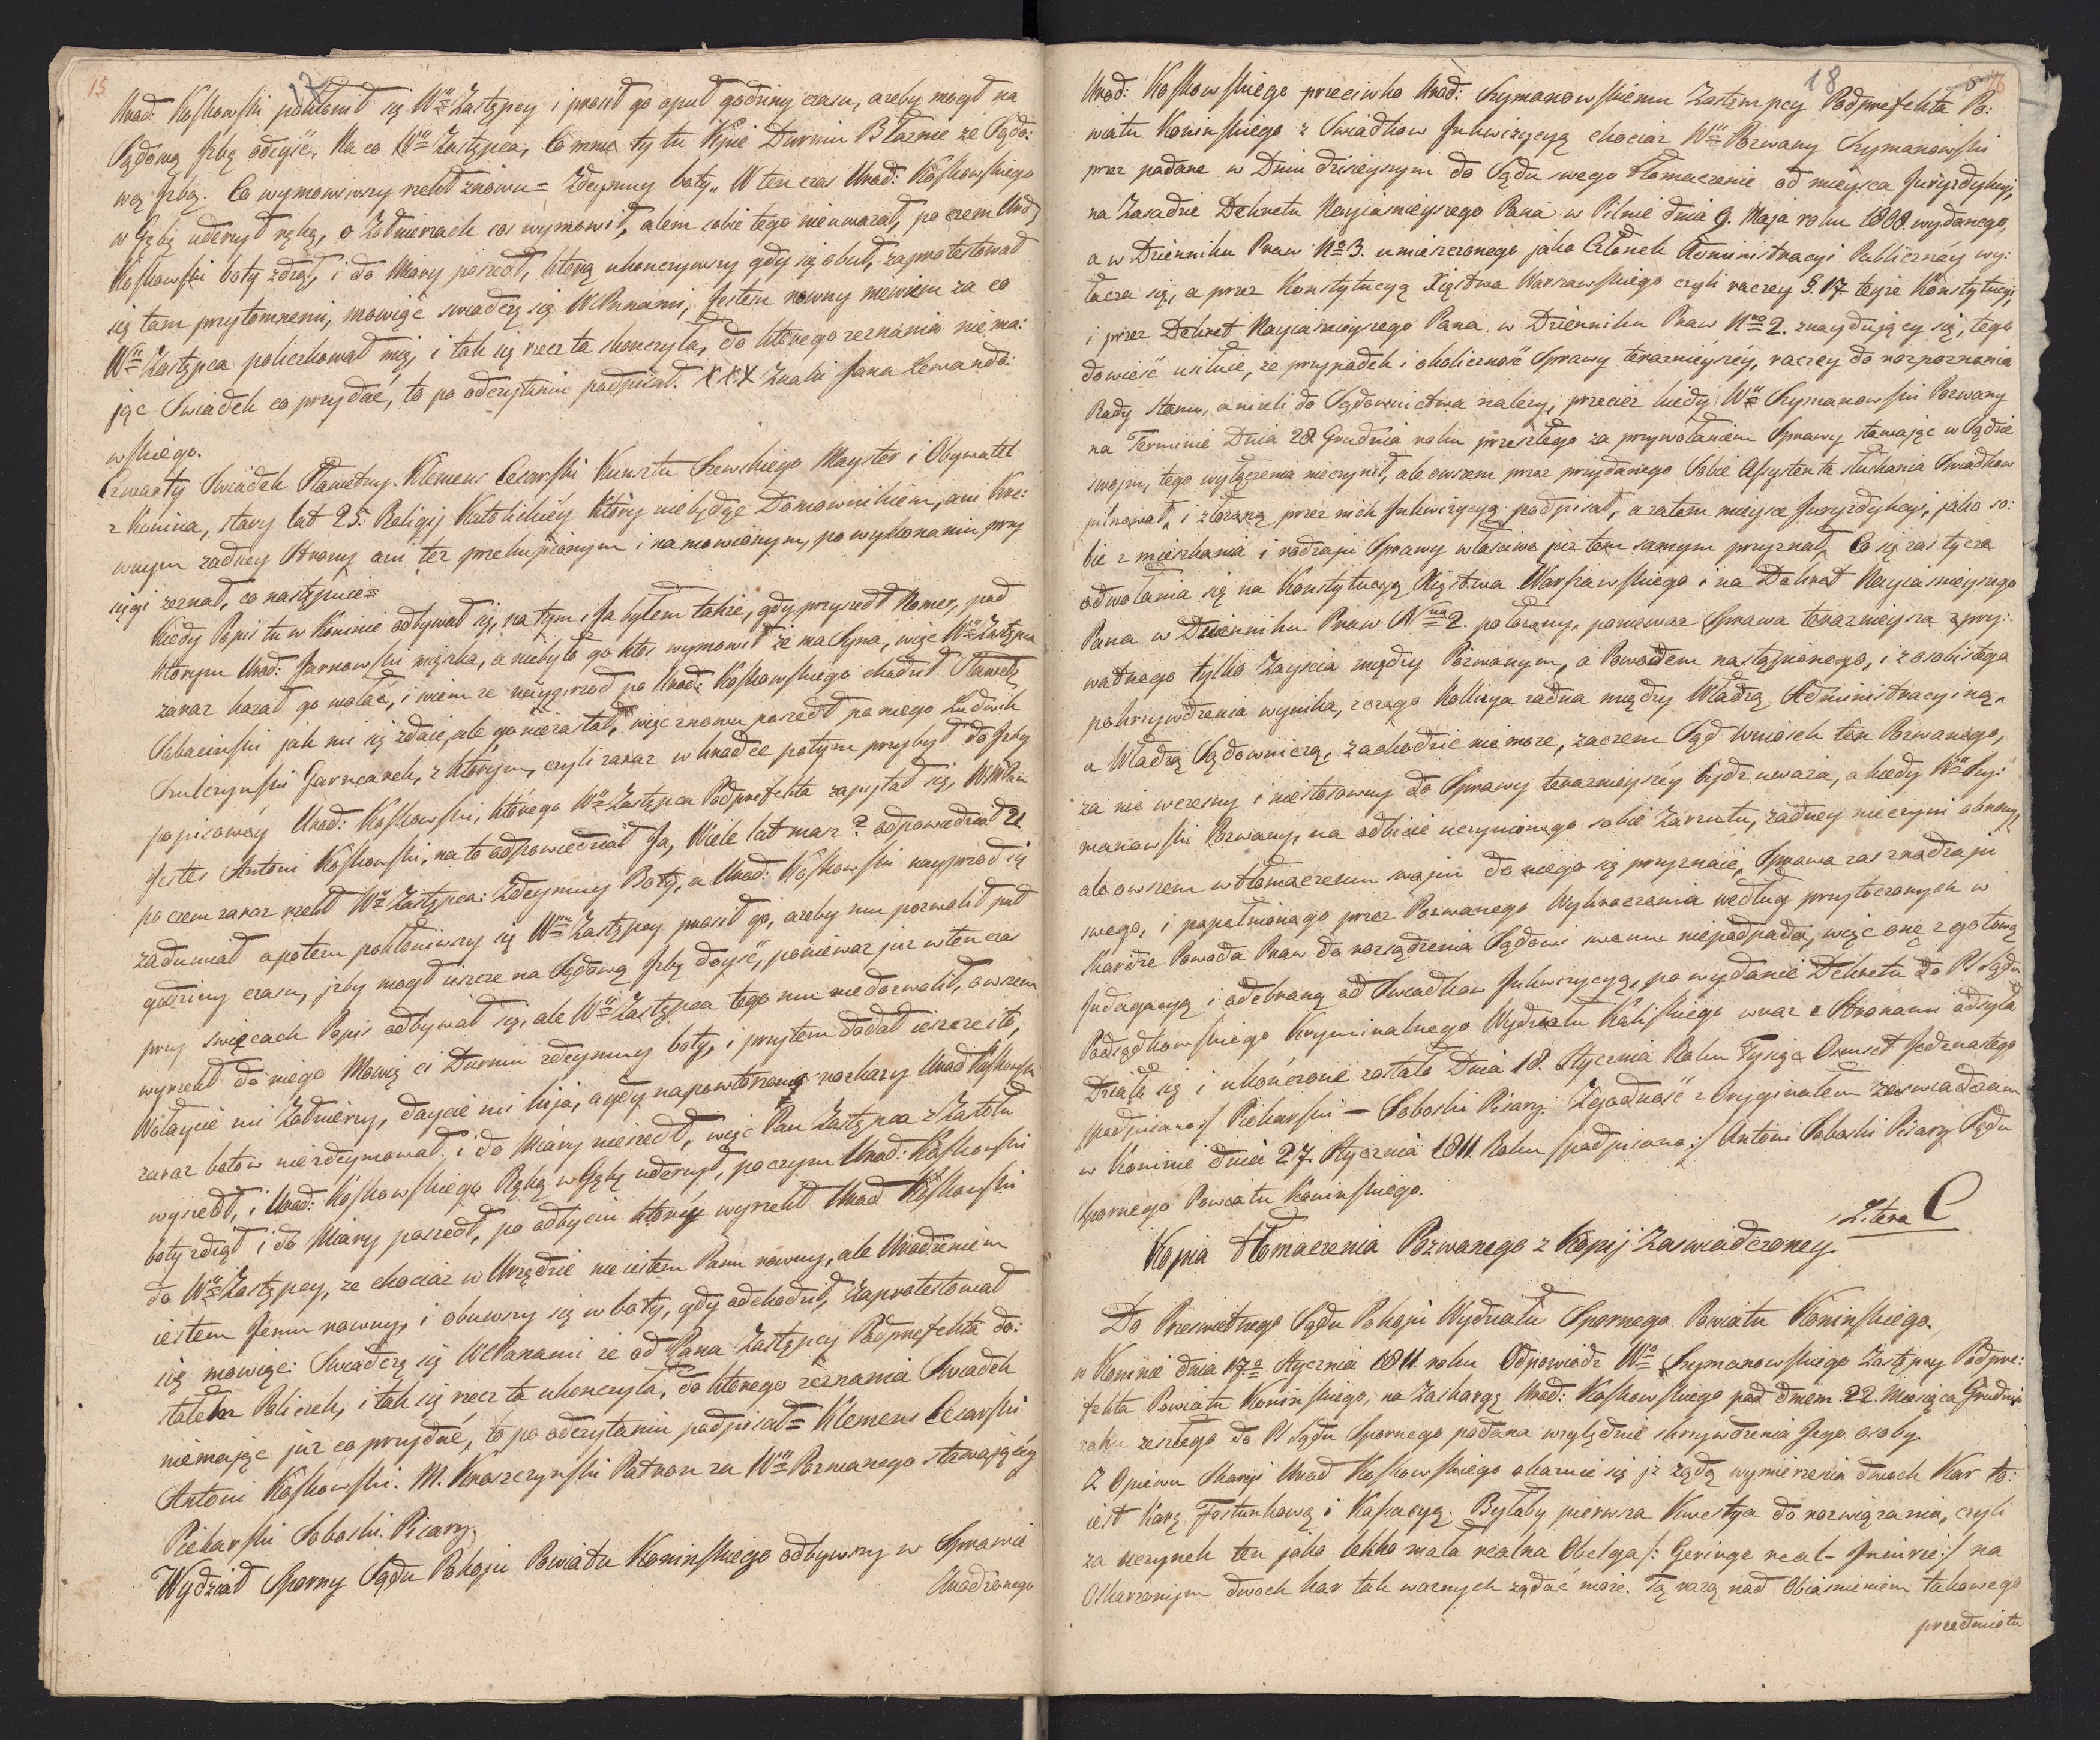 15
17
Urad: Koſkowſki pokłonił się W<sup>u</sup> Zastępcy i prosił go o puł godziny czasu, azeby mogł na
Sądową Izbę odeyść, Na co W<sup>y</sup> Zastępca, Co mnie ty tu Kpie Durniu Błaznie ze Sądo:
wą Izbą. Co wymowiwszy rzekł znowu = Zdeymuy boty„ W ten czas Urad: Koſkowſkiego
w Gębę uderzył ręką, o Zołnierzach cos wymowił, alem sobie tego nieuwazał, po czem Urad:
Koſkowſki boty zdzął, i do Miary poszedł, ktorą ukonczywszy gdy się obuł, zaprotestował
się tam przytomnemi, mowiąc swiadczę się WPanami, Jestem rowny niewiem za co
W<sup>y</sup> Zastępca policzkował mię, i tak się rzecz ta skonczyła, do ktorego zeznania nie ma:
jąc Swiadek co przydać, to po odczytaniu podpisał. XXX Znaki Jana Lewando:
wſkiego.
Czwarty Swiadek Sławetny Klemens Cesarſki Kunsztu Szewſkiego Mayster i Obywatel
z Konina, stary lat 25. Religij Katolickiéy który niebędąc Domownikiem, ani kre:
wnym zadney Strony ani tez przekupionym i namowionym, po wykonaniu przy
sięgi zeznał, co następuie =
Kiedy Popis tu w Koninie odbywał się, na tym i Ja byłem takze, gdy przyszedł Nomer, pod
ktorym Urad: Jarnowſki mięszka, a niebyło go ktos wymowił ze ma Syna, więc W<sup>y</sup> Zastępca
zaraz kazał go wołać, i wiem ze nayprzod po Urad: Koſkowſkiego chodził Sławetny
Sobacinſki jak mi się zdaie, ale go niezastał, więc znowu poszedł po niego Ludwik
Szulczynſki Garncarek, z ktorym, czyli zaraz w kradce potym przybył do Izby
popisowéy Urad: Koſkowſki, ktorego W<sup>y</sup> Zastępca Podprefekta zapytał się, WPan
Jestes Antoni Koſkowſki, na to odpowiedział Ja, Wiele lat masz? odpowiedział 21
po czem zaraz rzekł W<sup>y</sup> Zastępca: Zdeymuy Boty, a Urad: Koſkowſki nayprzod się
zadumiał a potem pokłoniwszy się W<sup>mu</sup> Zastępcy prosił go, azeby mu pozwolił puł
godziny czasu, izby mogł iszcze na Sądową Izbę doyść, poniewaz juz w ten czas
przy swięcach Popis odbywał się, ale W<sup>y</sup> Zastępca tego mu niedozwolił, owszem
wyrzekł do niego Mowię ci Durniu zdeymuy boty, i przytem dodał ieszcze i to,
Wołaycie mi Zołnierzy, daycie mi kija, a gdy na powtorzone rozkazy Urad Koſkowſki
zaraz botow niezdeymował, i do Miary nieszedł, więc Pan Zastępca z Za Stołu
wyszedł, i Urad: Koſkowſkiego Ręką w Gębę uderzył, poczym Urad: Koſkowſki
boty zdzął i do Miary poszedł, po odbyciu ktoréy wyrzekł Urad Koſkowſki
do W<sup>o</sup> Zastępcy, ze chociaz w Urzędzie nie iestem Panu rowny, ale Urodzeniem
iestem Jemu rowny, i obuwszy się w boty, gdy odchodził, Zaprotestował
się mowiąc: Swiadczę się WPanami ze od Pana Zastępcy Podprefekta do:
stałem Policzek, i tak się rzecz ta ukonczyła, do ktorego zeznania Swiadek
niemając juz co przydać, to po odczytaniu podpisał = Klemens Cesarſki
Antoni Koſkowſki. M. Kraszczynſki Patron za W<sup>m</sup> Pozwanego stawaiącéy
Piekarſki Soboski. Pisarz.
Wydział Sporny Sądu Pokoju Powiatu Koninſkiego odbywszy w Sprawie
Uradzonego
18
16
Urad: Koſkowſkiego przeciwko Urad: Szymanowſkiemu Zastempcy Podprefekta Po:
wiatu Koninſkiego z Swiadkow Inkwizycyą chociaz W<sup>y</sup> Pozwany Szymanowſki
przez podane w Dniu dzisieyszym do Sądu swego tłomaczenie od mieysca Juryzdykcyi,
na Zasadzie Dekretu Nayiasnieyszego Pana w Pilnie dnia 9. Maja roku 1808. wydanego,
a w Dzienniku Praw N<sup>o</sup> 3. umieszczonego jako Członek Administracyi Publicznéy wy:
łacza się, a przez Konstytucyą Xięstwa Warszawſkiego czyli raczey §. 17. teyze Konstytucyi,
i przez Dekret Nayiasnieyszego Pana w Dzienniku Praw N<sup>ro</sup> 2. znayduiący się, tego
dowieść usiłuie, ze przypadek i okoliczność Sprawy terazniéyszéy, raczey do rozpoznania
Rady Stanu, anizeli do Sądownictwa nalezy, przeciez kiedy W<sup>y</sup> Szymanowſki Pozwany
na Terminie Dnia 28. Grudnia roku przeszłego za przywołaniem Sprawy stawaiąc w Sądzie
swojm, tego wyłączenia nieczynił, ale owszem przez przydanego Sobie Assystenta słuchania Swiadkow
pilnował, i złozoną przez nich Inkwizycyą podpisał, a zatem mieysce Juryzdykcyi, jako so:
bie z mieszkania i rodzaju Sprawy własciwe juz tem samym przyznał, Co się zas tycze
odwołania się na Konstytucyą Xięstwa Warszawſkiego i na Dekret Nayiasnieyszego
Pana w Dzienniku Praw N<sup>ro</sup> 2. połozony, poniewaz Sprawa teraznieysza z pry:
watnego tylko Zayscia między Pozwanym, a Powodem nastąpionego, i z osobistego
pokrzywdzenia wynika, z czego Kollizya zadna między Władzą Administracyiną,
a Władzą Sądowniczą, zachodzić nie moze, zaczem Sąd Wniosek ten Pozwanego,
za nie wczesny i niestosowny do Sprawy terazniéyszéy bydz uwaza, a kiedy W<sup>y</sup> Szy:
manowſki Pozwany, na odbicie uczynionego sobie Zarzutu, zadney nieczyni obrony,
ale owszem w tłomaczeniu swoim do niego się przyznaie, Sprawa zas z rodzaju
swego, i popełnionego przez Pozwanego Wykroczenia według przytoczonych w
Skardze Powoda Praw do rozsądzenia Sądowi swemu niepodpada, więc onę z gotową
Indagacyą i odebraną od Swiadkow Inkwizycyą, po wydanie Dekretu do P. Sądu
Podsądkowſkiego Kryminalnego Wydziału Kaliſkiego wraz z Stronami odsyła
Działo się i ukończone zostało Dnia 18. Stycznia Roku Tysiąc Osmset Jedenastego
/podpisano:/ Piekarſki — Soboski Pisarz. Zgodność z Oryginałem zaswiadczam
w Koninie dnia 27. Stycznia 1811. Roku /podpisano:/ Antoni Soboski Pisarz Sądu
Spornego Powiatu Koninſkiego.
Litera C
Kopia Tłomaczenia Pozwanego z Kopij Zaswiadczoney.
Do Przeswietnego Sądu Pokoju Wydziału Spornego Powiatu Koninſkiego.
w Koninie dnia 17<sup>o</sup> Stycznia 1811. roku Odpowiedz W<sup>o</sup> Szymanowſkiego Zastępcy Podpre:
fekta Powiatu Koninſkiego, na Zaskargę Urad: Koſkowſkiego pod dniem 22. Miesiąca Grudnia
roku zeszłego do P. Sądu Spornego podana względnie skrzywdzenia Jego osoby.
Z Opiewu Skargi Urad Koſkowſkiego okazuie się iz ządą wymierzenia dwoch Kar to:
iest Karę Festunkową i Kassacyą. Byłaby pierwsza Kwestya do rozwiązania, czyli
za uczynek ten jako lekko mała realna Obelga /: Geringe real-Iniurie:/ na
Oskarzonym dwoch kar tak waznych ządać moze. Tą razą nad Obiasnieniem takowego
przedmiotu